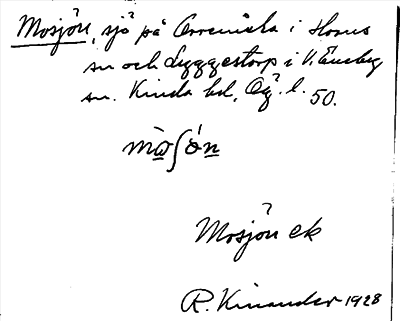 Mosjön, sjö på Orreniska i Horns
sn och Lyggestorp i V. Eneby
sn. Kinda hd, Ög. l. 50.
mò̱ʃó̱n
Mosjön ek
R. Kinander 1928